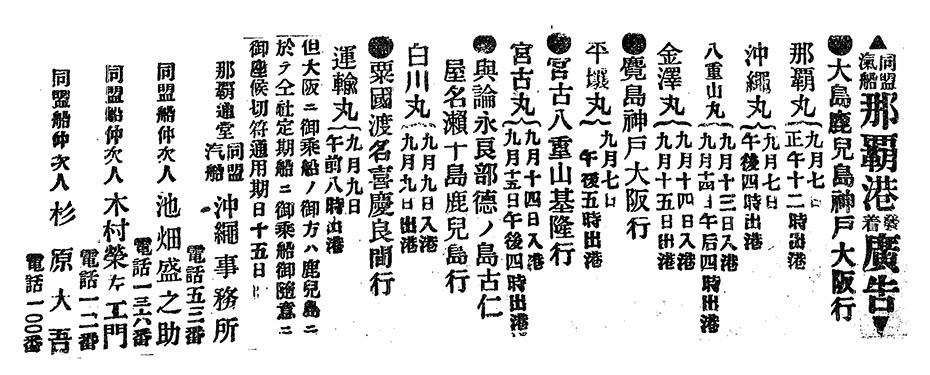 ▲同盟汽船那覇港發着廣告▼
●大島鹿兒島神戸大阪行
那覇丸 九月七日 正午十二時出港
沖繩丸 九月七日 午後四時出港
八重山丸 九月十三日入港 九月十四日午后四時出港
金澤丸 九月十四日入港 九月十五日出港
●鹿島神戸大阪行
平壤丸 九月七日 午後五時出港
●宮古八重山基隆行
宮古丸 九月十四日入港 九月十五日午後四時出港
●與論永良部德ノ島古仁
屋名瀬十島鹿兒島行
白川丸 九月九日入港 九月九日出港
●粟國渡名喜慶良間行
運輸丸 九月九日 午前八時出港
但大阪ニ御乘船ノ御方ハ鹿兒島ニ
於テ仝社定期船ニ御乘船御隨意ニ
御座候切符通用期日十五日
那覇通堂 同盟汽船 沖繩事務所
電話五三番
同盟船仲次人 池畑盛之助
電話一三六番
同盟船仲次人 木村榮左エ門
電話一一二番
同盟船仲次人 杉原大吾
電話一〇〇番